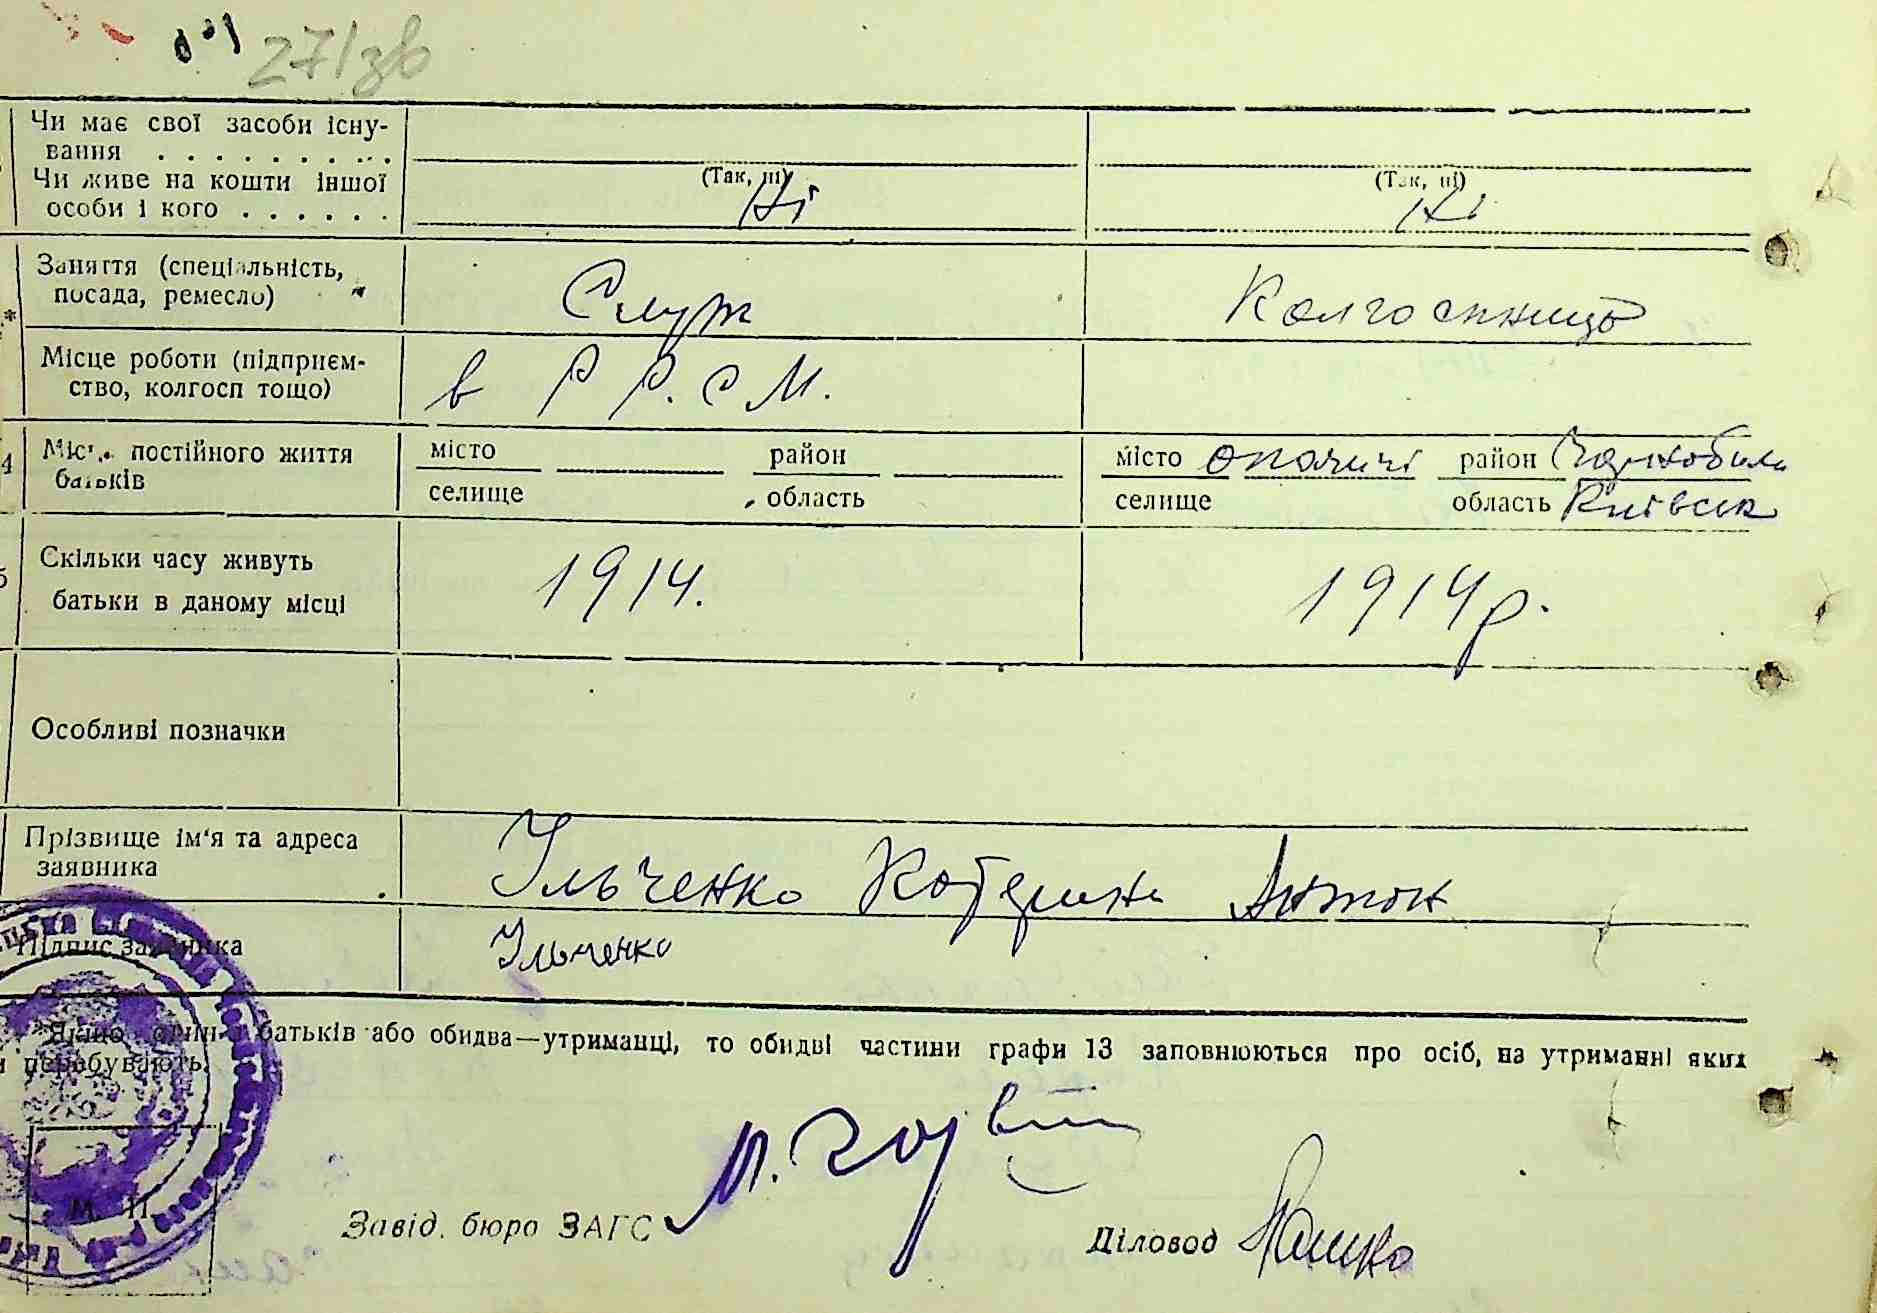 27/зв
Чи має свої засоби існу-
вання . . . . . . . . . .
Чи живе на кошти іншої (Так, ні) (Так, ні)
особи і кого . . . . . . Ні Ні
Заняття (спеціальність,
посада, ремесло) Служ Колгоспниця
Місце роботи (підприєм-
ство, колгосп тощо) в Р Р. С М.
4 Місце постійного життя місто район місто Опачичі район Чорнобиль
батьків селище область селище область Київськ
5 Скільки часу живуть
батьки в даному місці 1914. 1914 р.
Особливі позначки
Прізвище ім'я та адреса
заявника Ільченко Катерина Антон
Підпис заявника Ільченко
Якщо один з батьків або обидва—утриманці, то обидві частини графи 13 заповнюються про осіб, на утриманні яких
перебувають.
М. П.
Завід. бюро ЗАГС
Діловод